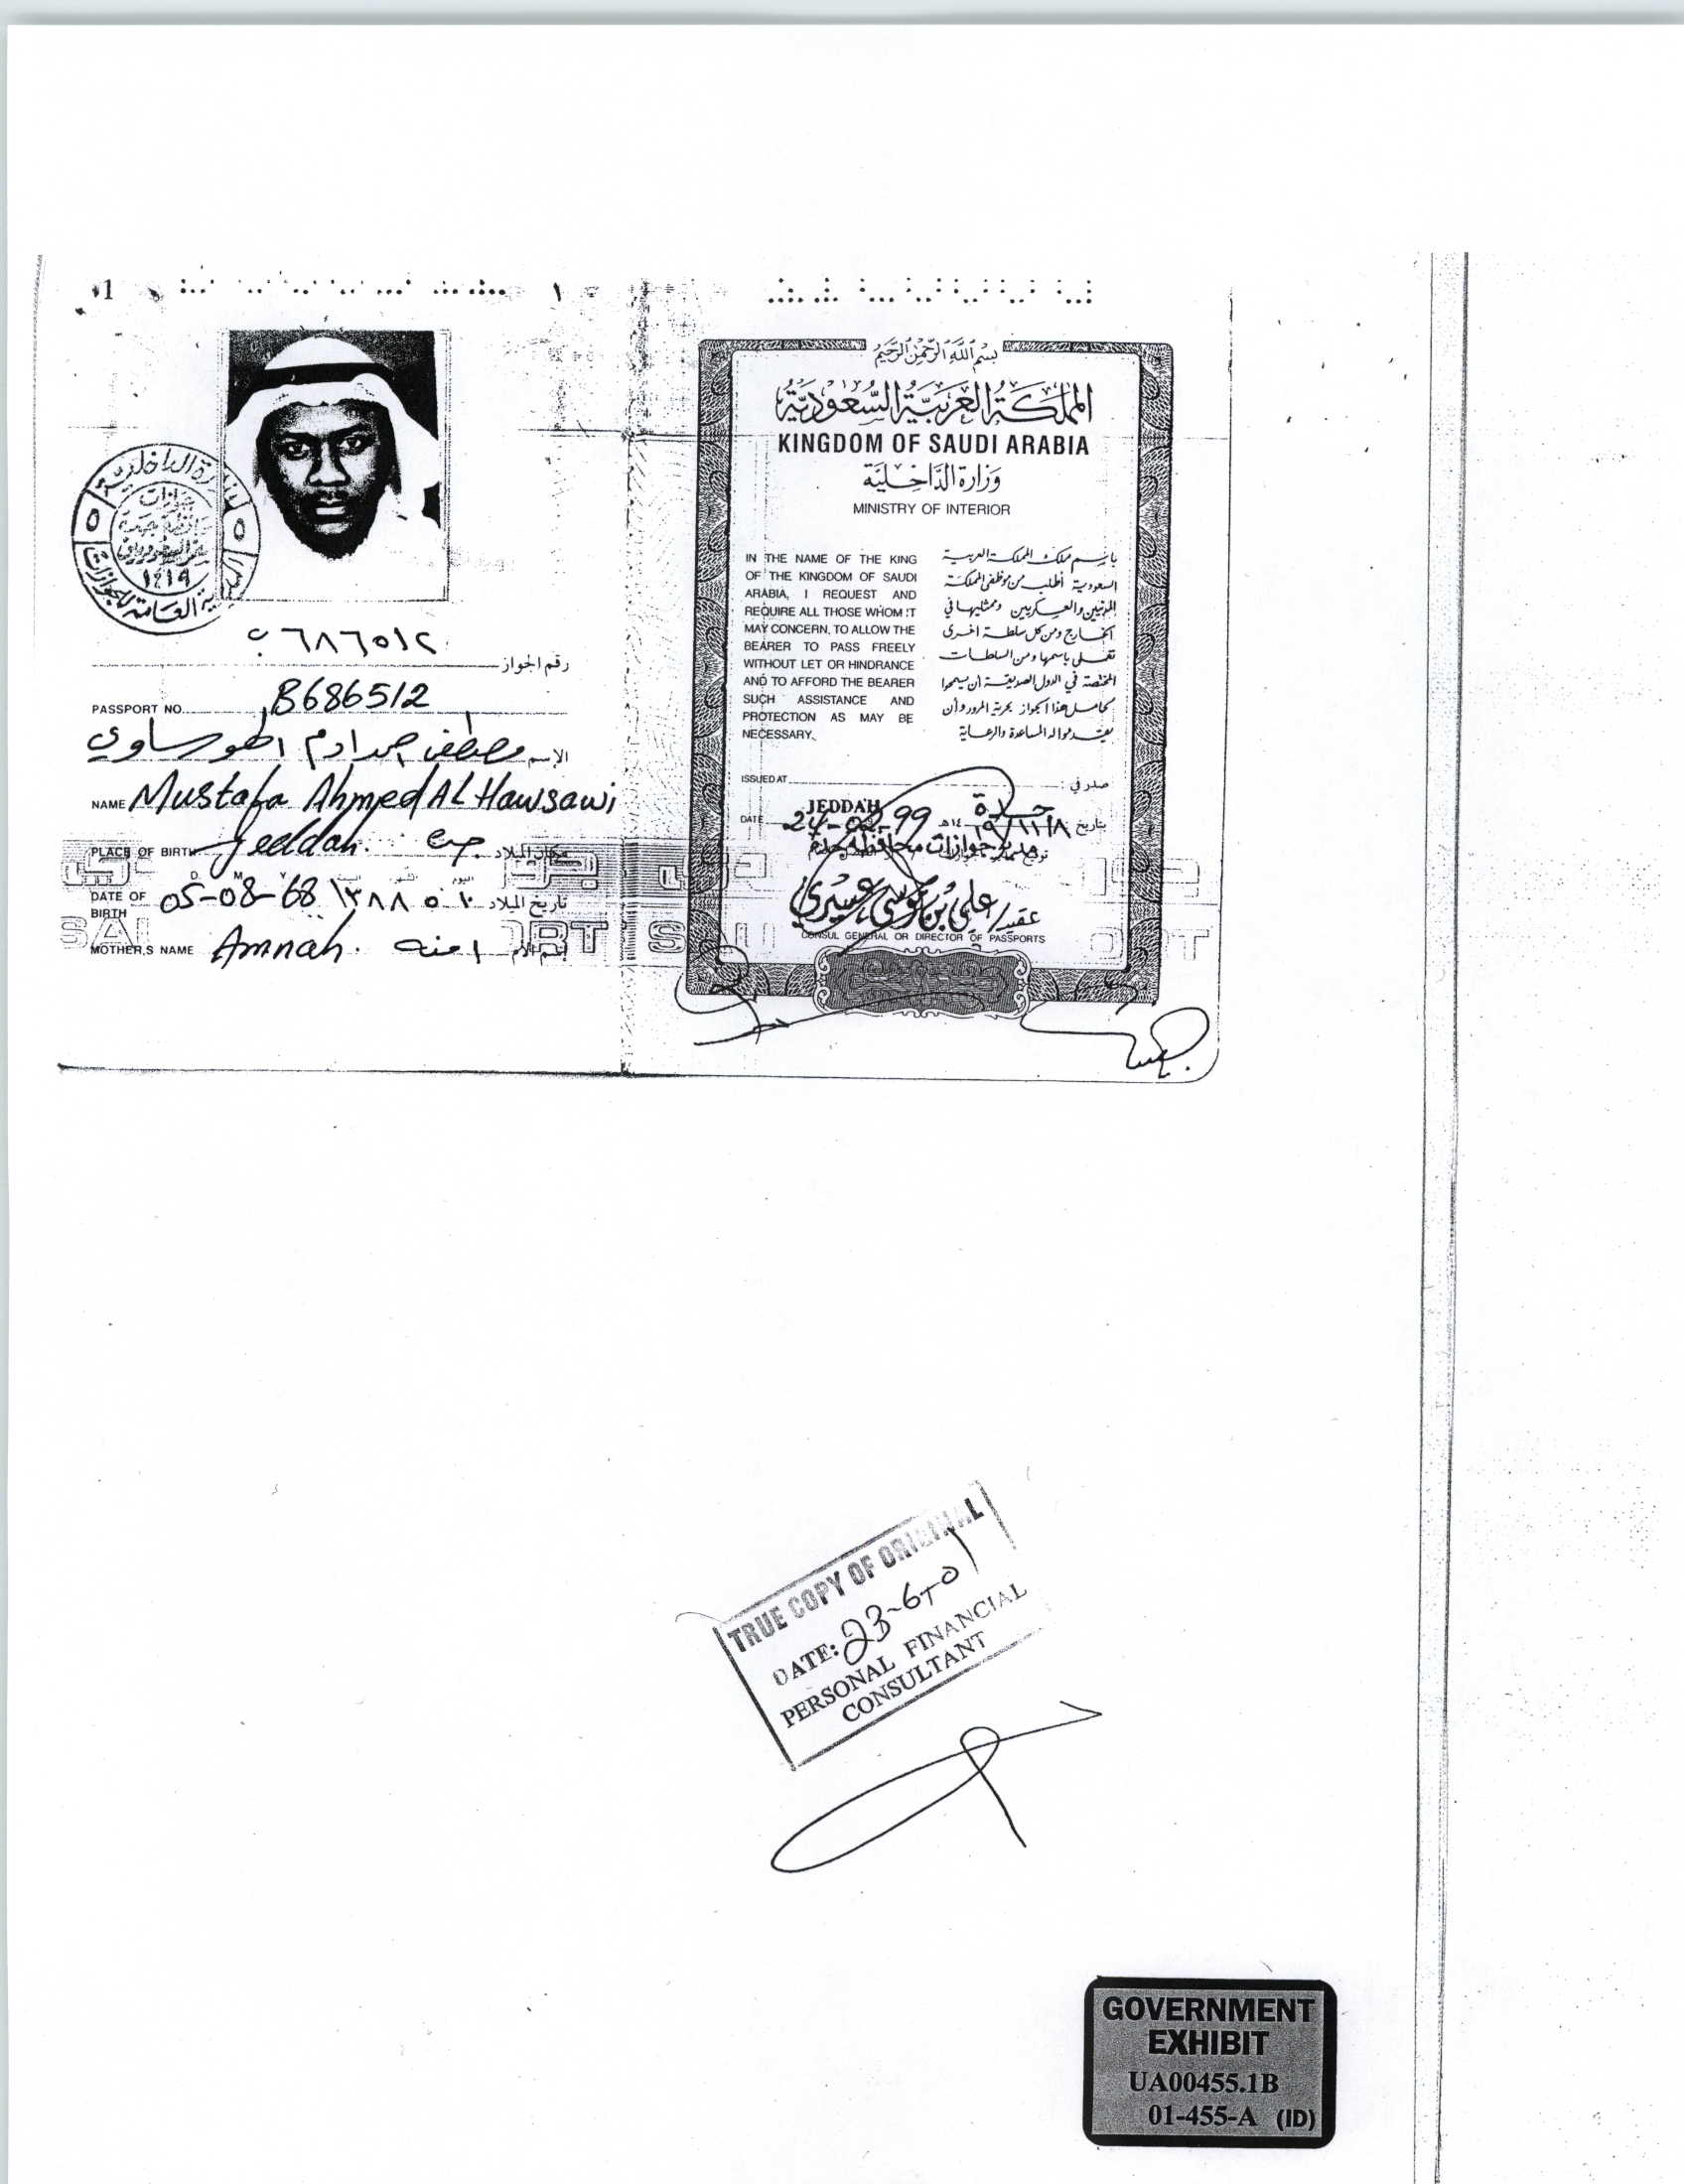 1
١
٥
٥
١٤١٩
ب ٦٨٦٥١٢
رقم الجواز
PASSPORT NO. B686512
الإسم مصطفى احمد ادم الهوساوي
NAME Mustafa Ahmed AL Hawsawi
PLACE OF BIRTH Jeddah. جده مكان الميلاد
D. M. Y. السنة الشهر اليوم
DATE OF BIRTH 05-08-68 تاريخ الميلاد ١٠ ٥ ١٣٨٨
MOTHER,S NAME Amnah. امنه إسم الأم
بسم الله الرحمن الرحيم
المملكة العربية السعودية
KINGDOM OF SAUDI ARABIA
وزارة الداخلية
MINISTRY OF INTERIOR
IN THE NAME OF THE KING
OF THE KINGDOM OF SAUDI
ARABIA, I REQUEST AND
REQUIRE ALL THOSE WHOM IT
MAY CONCERN, TO ALLOW THE
BEARER TO PASS FREELY
WITHOUT LET OR HINDRANCE
AND TO AFFORD THE BEARER
SUCH ASSISTANCE AND
PROTECTION AS MAY BE
NECESSARY.
باسم ملك المملكة العربية
السعودية أطلب من موظفي المملكة
المدنيين والعسكريين وممثليها في
الخارج ومن كل سلطة اخرى
تعمل باسمها ومن السلطات
المختصة في الدول الصديقة أن يسمحوا
لحامل هذا الجواز بحرية المرور وأن
يقدموا له المساعدة والرعاية
ISSUED AT صدر في :
JEDDAH جدة
DATE 24-02-99 بتاريخ ١٩/١١/٨ ١٤هـ
مدير جوازات محافظة جدة
عقيد/ علي بن موسى عسيري
CONSUL GENERAL OR DIRECTOR OF PASSPORTS
TRUE COPY OF ORIGINAL
DATE: 23-6-01
PERSONAL FINANCIAL
CONSULTANT
GOVERNMENT
EXHIBIT
UA00455.1B
01-455-A (ID)